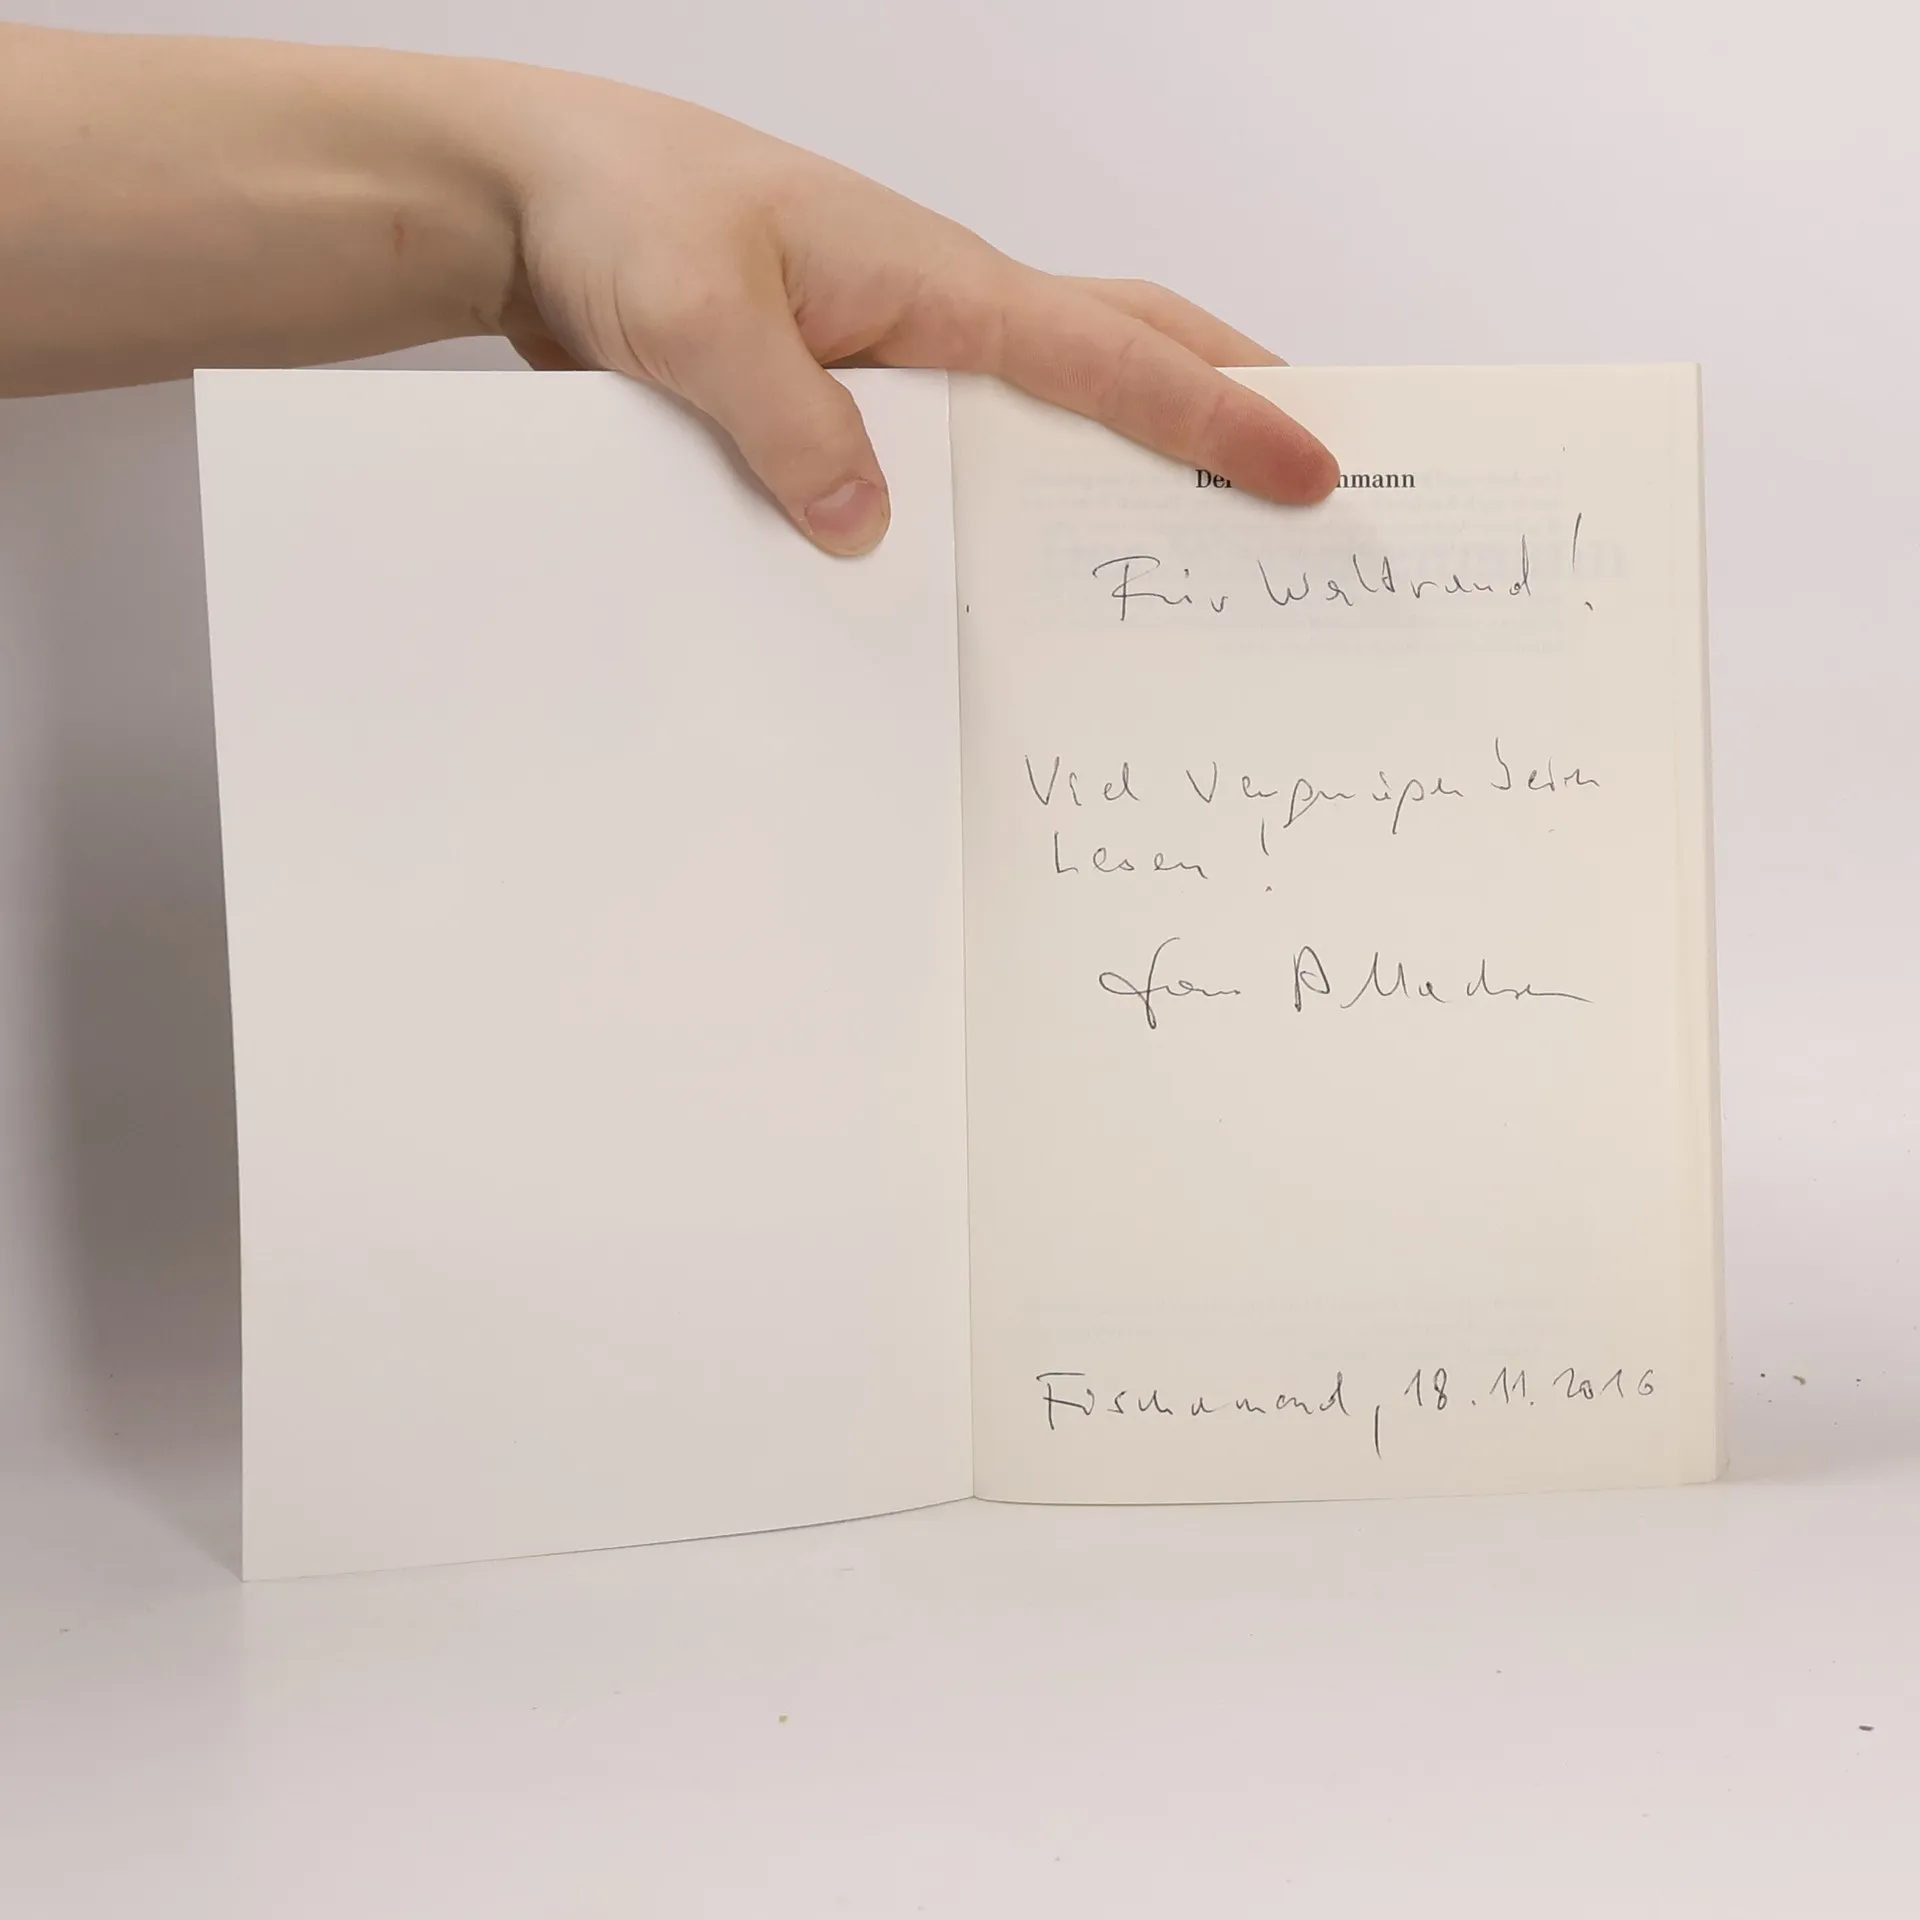 De nmann
Für Waltraud!
Viel Vergnügen beim
Lesen!
A Madsen
Fischamend, 18.11.2016